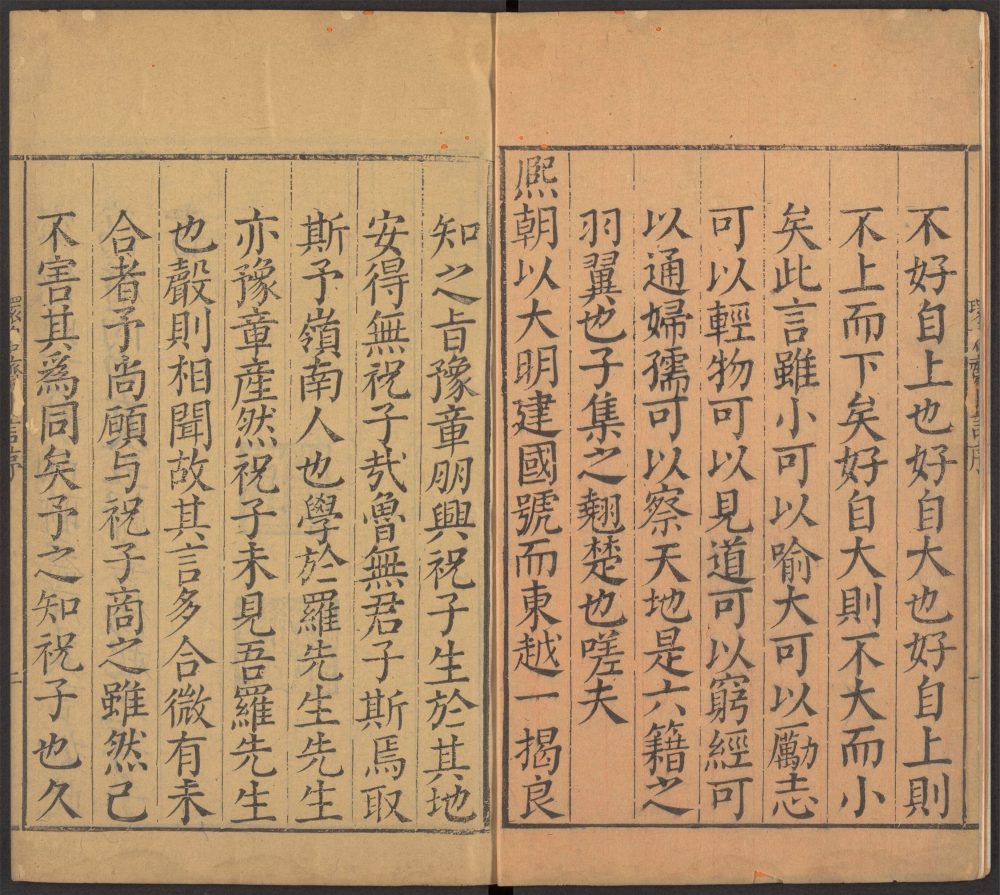 不好自上也好自大也好自上則
不上而下矣好自大則不大而小
矣此言雖小可以喻大可以勵志
可以輕物可以見道可以窮經可
以通婦孺可以察天地是六籍之
羽翼也子集之翹楚也嗟夫
熈朝以大明建國號而東越一揭良
知之旨豫章朋興祝子生於其地
安得無祝子㦲魯無君子斯焉取
斯予嶺南人也學於羅先生先生
亦豫章產然祝子未見吾羅先生
也聲則相聞故其言多合微有未
合者予尚顧与祝子商之雖然己
不害其爲同矣予之知祝子也久